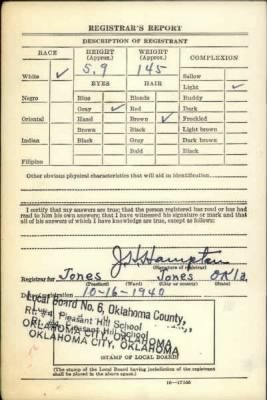 REGISTRAR'S REPORT
DESCRIPTION OF REGISTRANT
RACE HEIGHT (Approx.) WEIGHT (Approx.) COMPLEXION
5.9 145
White ✓ EYES HAIR Sallow
Light ✓
Negro Blue Blonde Ruddy
Gray ✓ Red Dark
Oriental Hazel Brown ✓ Freckled
Brown Black Light brown
Indian Black Gray Dark brown
Bald Black
Filipino
Other obvious physical characteristics that will aid in identification
I certify that my answers are true; that the person registered has read or has had
read to him his own answers; that I have witnessed his signature or mark and that
all of his answers of which I have knowledge are true, except as follows:
(Signature of registrar)
Registrar for Jones Jones Okla.
(Precinct) (Ward) (City or county) (State)
Date of registration 10-16-1940
Local Board No. 6, Oklahoma County,
Rt. #4 Pleasant Hill School
OKLAHOMA CITY, OKLAHOMA
(STAMP OF LOCAL BOARD)
(The stamp of the Local Board having jurisdiction of the registrant
shall be placed in the above space.)